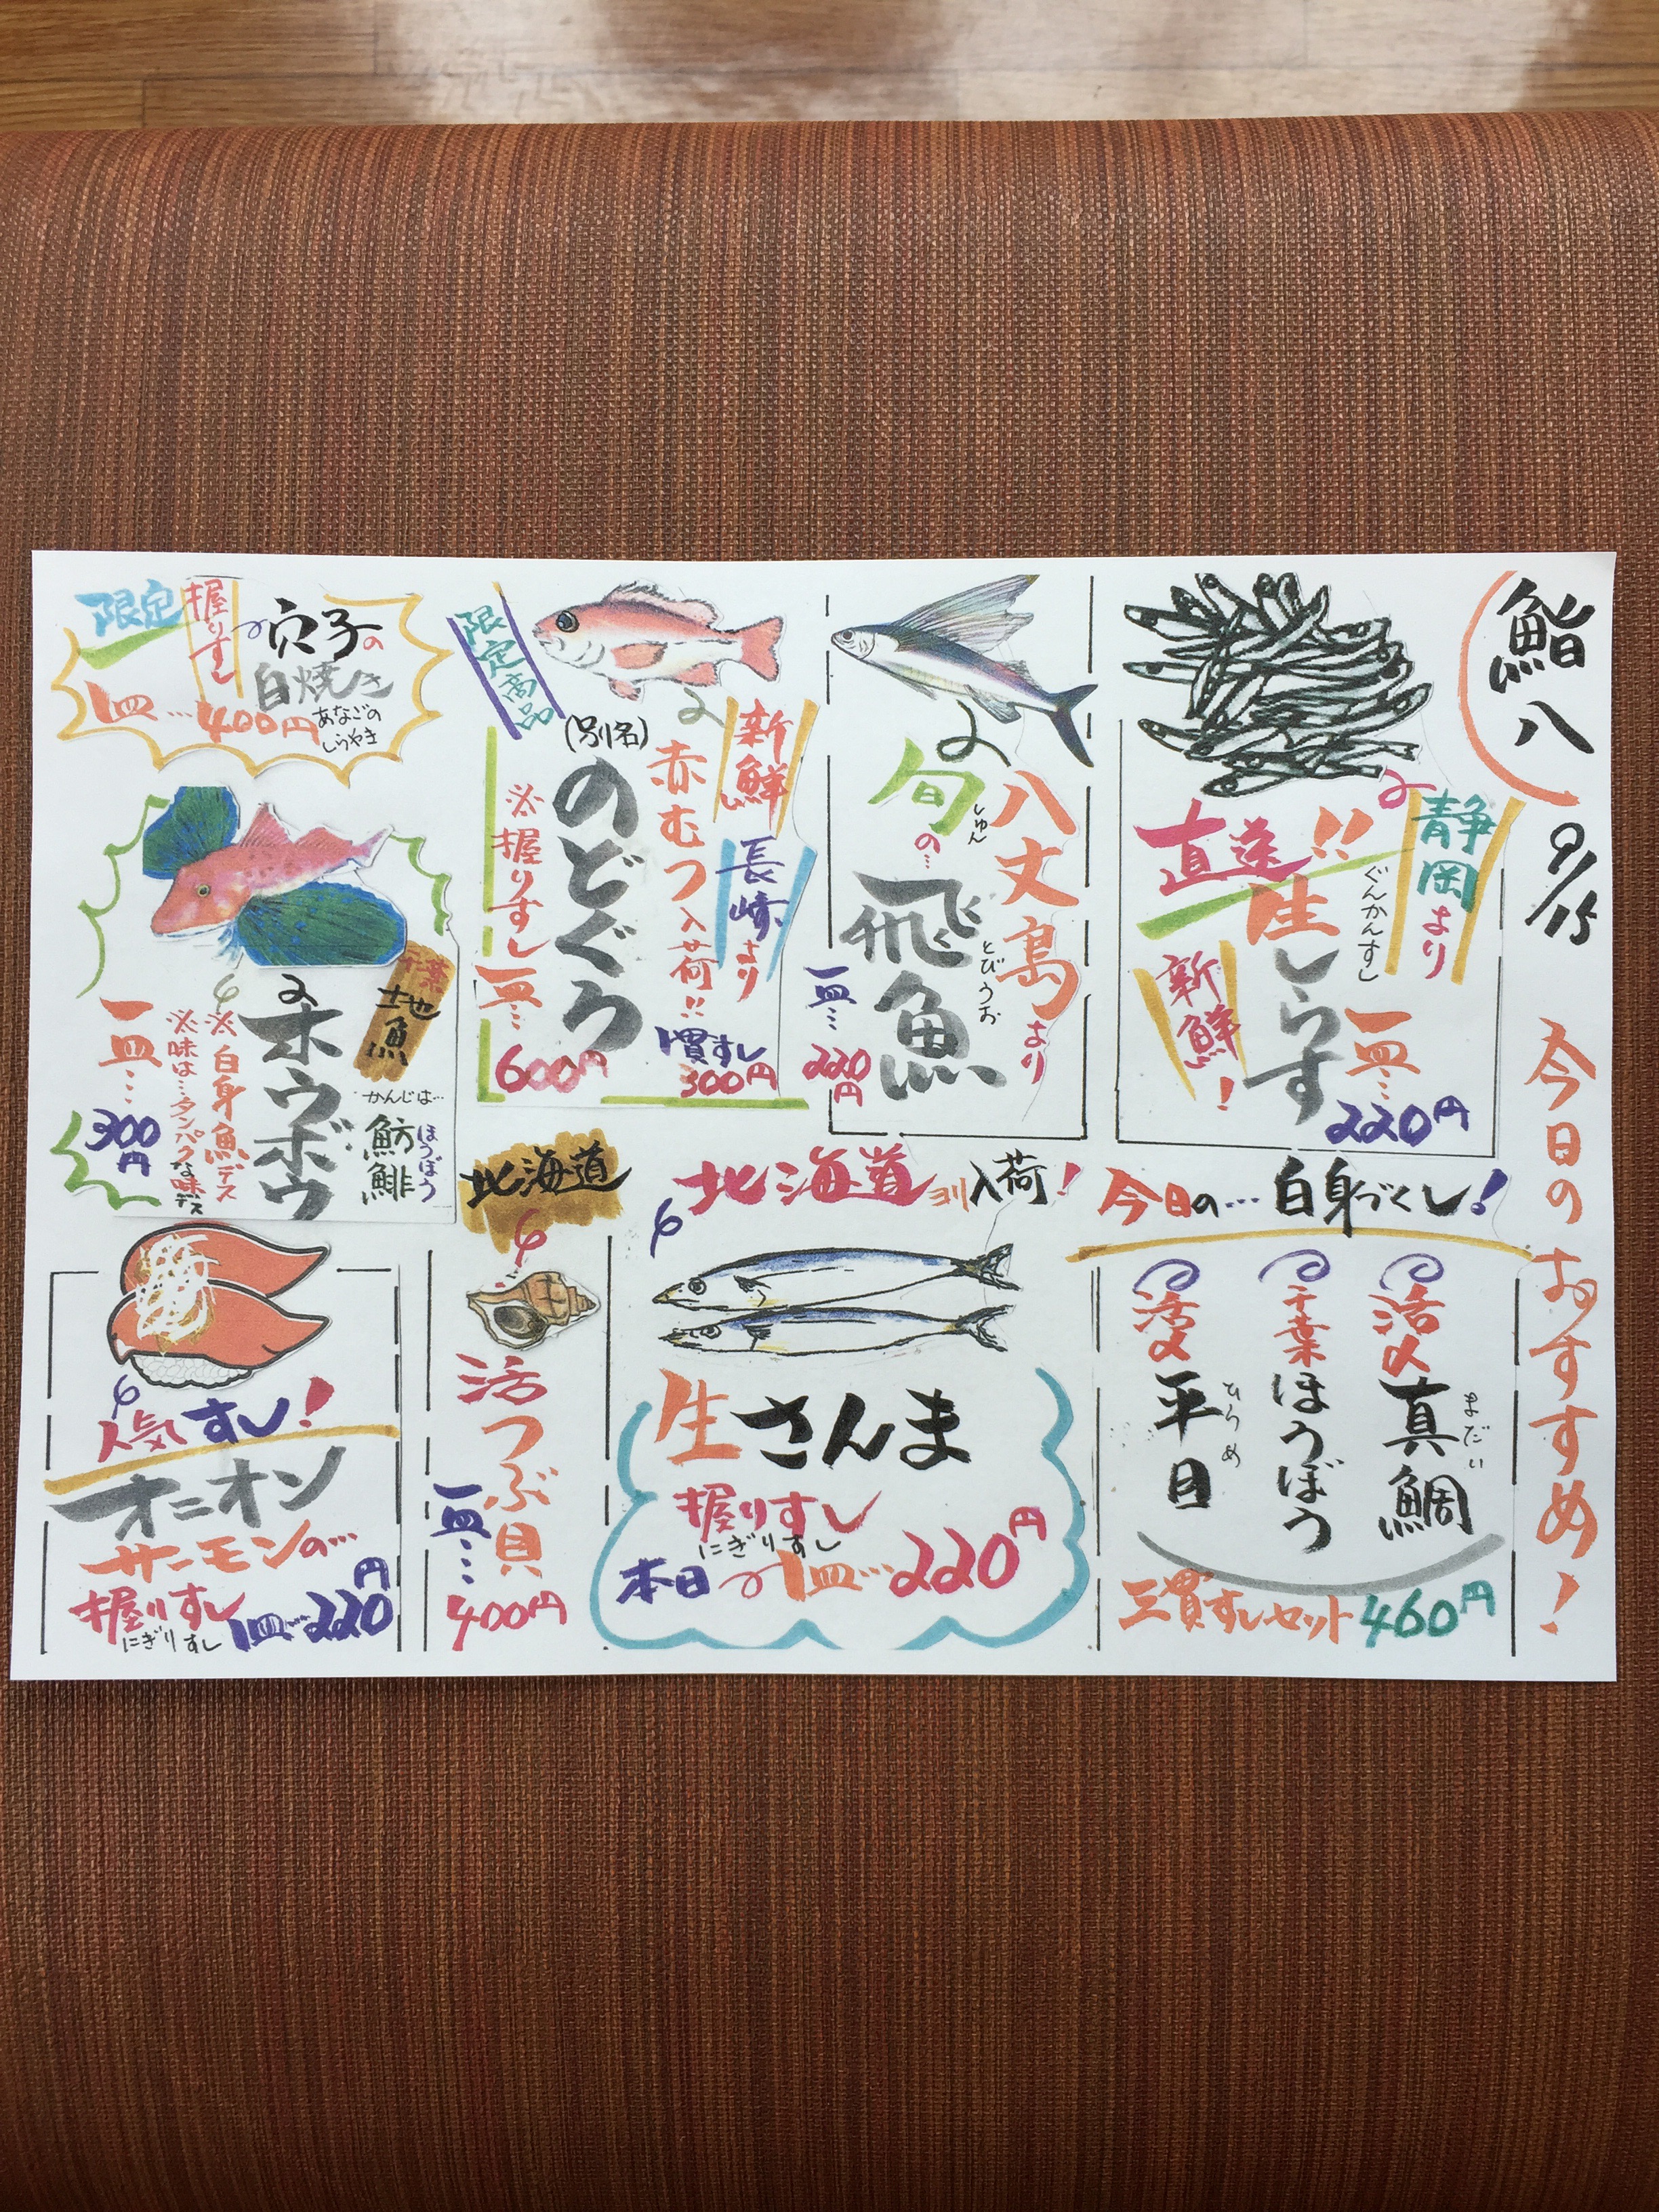 鮨八
9/15
今日のおすすめ!
静岡より
直送!!
ぐんかんすし
生しらす
新鮮!
一皿…
220円
八丈島より
旬の…
しゅん
飛魚
とびうお
一皿…
220円
限定商品
新鮮
長崎より
赤むつ入荷!!
(別名)
のどぐろ
※握りすし
一皿…
600円
1貫すし
300円
限定
握りすし
穴子の
白焼き
あなごの
しらやき
1皿…400円
千葉
地魚
ホウボウ
かんじは…
魴鮄
ほうぼう
※白身魚デス
※味は…タンパクな味デス
一皿…
300円
今日の…白身づくし!
活〆真鯛
まだい
千葉ほうぼう
活〆平目
ひらめ
三貫すしセット460円
北海道ヨリ入荷!
生さんま
握りすし
にぎりすし
本日1皿…220円
北海道
活つぶ貝
一皿…
400円
人気すし!
オニオン
サーモンの…
握りすし
にぎりすし
1皿…220円